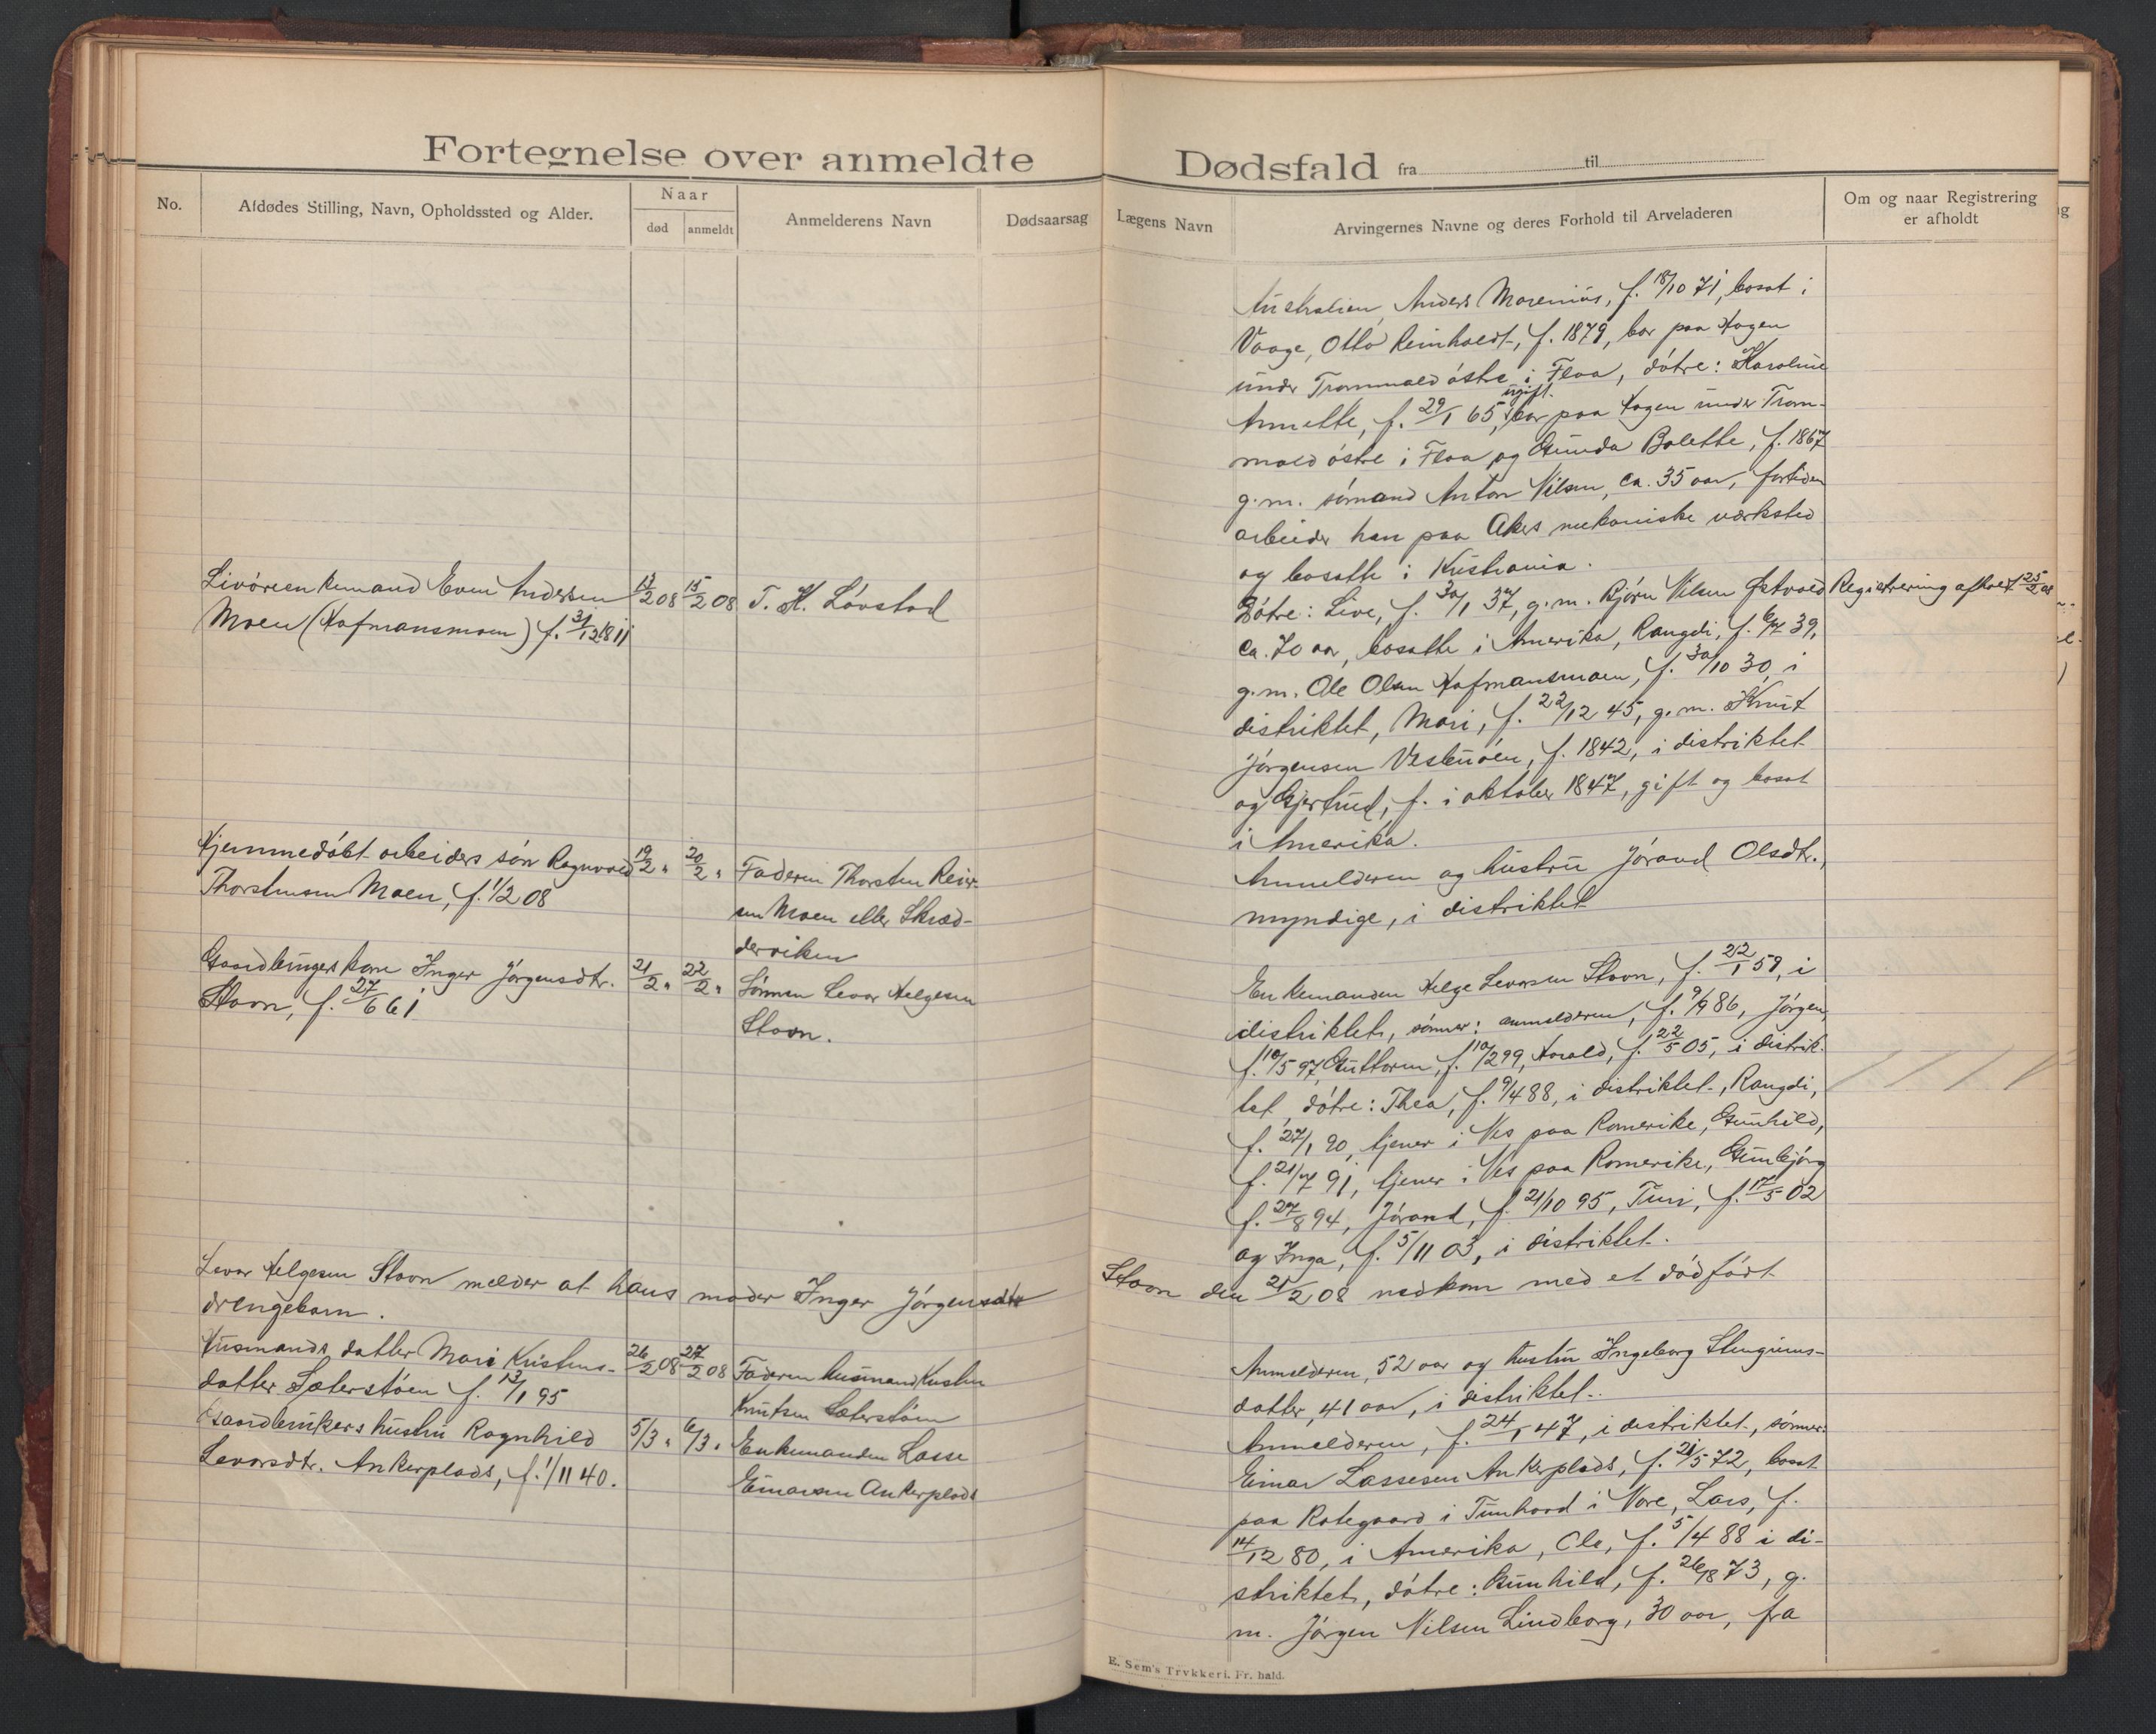 Fortegnelse over anmeldte Dødsfald fra til
No.
Afdødes Stilling, Navn, Opholdssted og Alder.
Naar
død anmeldt
Anmelderens Navn
Dødsaarsag
Lægens Navn
Arvingernes Navne og deres Forhold til Arveladeren
Om og naar Registrering
er afholdt
Australien, Anders Marenius, f. 18/10 71, bosat i
Vaage, Otto Reinholdt, f. 1879, bor paa Hagen
under Trommald østre i Flaa, døtre: Karoline
ugift.
Annette, f. 29/1 65, bor paa Hagen under Trom-
mald østre i Flaa og Gunda Bolette, f. 1867
g.m. sømand Anton Nilsen, ca. 35 aar, fortiden
arbeider han paa Akers mekaniske værksted
og bosatte i Kristiania.
Livøreenkemand Even Andersen 13/2 08 15/2 08 T. H. Løvstad
Moen (Hafmansmoen) f. 31/12 1811
Døtre: Live, f. 30/1 37, g.m. Bjørn Nilsen Østvold Registrering afholdt 25/2 08
ca. 70 aar, bosatte i Amerika, Rangdi, f. 6/7 39,
g.m. Ole Olsen Hafmansmoen, f. 30/10 30, i
distriktet, Mari, f. 22/12 45, g.m. Knut
Jørgensen Vestenøen, f. 1842, i distriktet
og Gjertrud, f. i oktober 1847, gift og bosat
i Amerika.
Hjemmedøbt arbeiders søn Ragnvald 19/2 " 20/2 " Faderen Thorsten Reier-
Thorstensen Moen, f. 1/2 08
sen Moen eller Skræd-
derviken
Anmelderen og hustru Jørand Olsdtr.,
myndige, i distriktet
Gaardbrugerkone Inger Jørgensdtr. 21/2 " 22/2 " Sønnen Levor Helgesen
Stavn, f. 27/6 61
Stavn.
Enkemanden Helge Levorsen Stavn, f. 22/1 59, i
distriktet, sønner: anmelderen, f. 9/9 86, Jørgen,
f. 10/5 97, Guttorm, f. 10/2 99, Harald, f. 22/5 05, i distrik-
tet, døtre: Thea, f. 9/4 88, i distriktet, Rangdi,
f. 27/1 90, tjener i Nes paa Romerike, Gunhild,
f. 21/7 91, tjener i Nes paa Romerike, Gunbjørg
f. 27/8 94, Jørand, f. 21/10 95, Turi, f. 17/5 02
og Inga, f. 5/11 03, i distriktet.
Levor Helgesen Stavn melder at hans moder Inger Jørgensdtr Stavn den 21/2 08 nedkom med et dødfødt
drengebarn.
Husmands datter Mari Kristens- 26/2 08 27/2 08 Faderen husmand Kristen
datter Sæterstøen f. 13/1 95
Knutsen Sæterstøen
Anmelderen, 52 aar og hustru Ingeborg Stengrims-
datter, 41 aar, i distriktet.
Gaardbrukers hustru Ragnhild 5/3 " 6/3 " Enkemanden Lasse
Levorsdtr. Ankerplads, f. 1/11 40.
Einarsen Ankerplads
Anmelderen, f. 24/1 47, i distriktet, sønner:
Einar Lassesen Ankerplads, f. 21/5 72, bosat
paa Rotegaard i Tunhovd i Nore, Lars, f.
14/12 80, i Amerika, Ole, f. 5/4 88 i di-
striktet, døtre: Gunhild, f. 26/8 73, g.
m. Jørgen Nilsen Lindberg, 30 aar, fra
E. Sem's Trykkeri. Fr.hald.